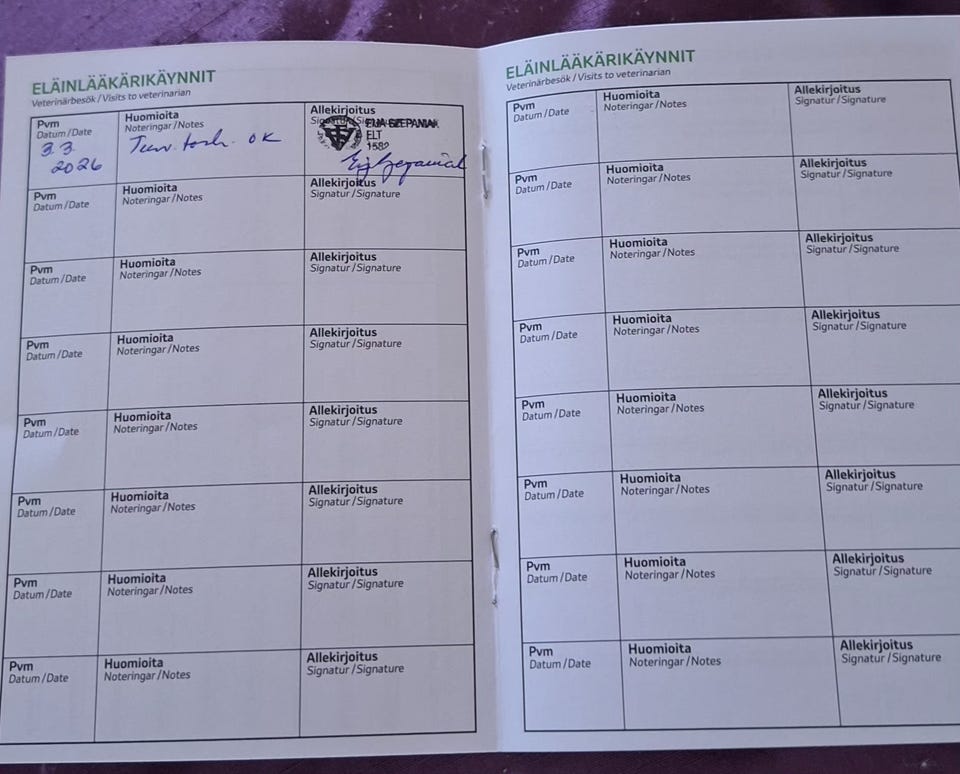 ELÄINLÄÄKÄRIKÄYNNIT
Veterinärbesök / Visits to veterinarian
Pvm Huomioita Allekirjoitus
Datum / Date Noteringar / Notes Signatur / Signature
3.3. 2026 OK
ELT
Pvm Huomioita Allekirjoitus
Datum / Date Noteringar / Notes Signatur / Signature
Pvm Huomioita Allekirjoitus
Datum / Date Noteringar / Notes Signatur / Signature
Pvm Huomioita Allekirjoitus
Datum / Date Noteringar / Notes Signatur / Signature
Pvm Huomioita Allekirjoitus
Datum / Date Noteringar / Notes Signatur / Signature
Pvm Huomioita Allekirjoitus
Datum / Date Noteringar / Notes Signatur / Signature
Pvm Huomioita Allekirjoitus
Datum / Date Noteringar / Notes Signatur / Signature
Pvm Huomioita Allekirjoitus
Datum / Date Noteringar / Notes Signatur / Signature
ELÄINLÄÄKÄRIKÄYNNIT
Veterinärbesök / Visits to veterinarian
Pvm Huomioita Allekirjoitus
Datum / Date Noteringar / Notes Signatur / Signature
Pvm Huomioita Allekirjoitus
Datum / Date Noteringar / Notes Signatur / Signature
Pvm Huomioita Allekirjoitus
Datum / Date Noteringar / Notes Signatur / Signature
Pvm Huomioita Allekirjoitus
Datum / Date Noteringar / Notes Signatur / Signature
Pvm Huomioita Allekirjoitus
Datum / Date Noteringar / Notes Signatur / Signature
Pvm Huomioita Allekirjoitus
Datum / Date Noteringar / Notes Signatur / Signature
Pvm Huomioita Allekirjoitus
Datum / Date Noteringar / Notes Signatur / Signature
Pvm Huomioita Allekirjoitus
Datum / Date Noteringar / Notes Signatur / Signature